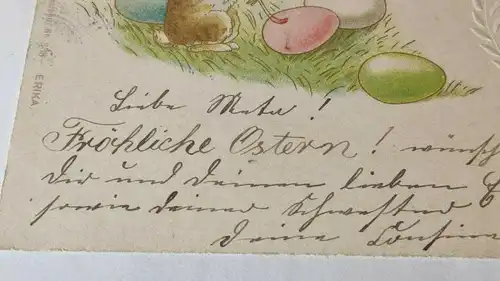 ERIKA
Liebe Meta!
Fröhliche Ostern! wünsch
Dir und deinen lieben E
sowie deiner Schwester
Deine Cousine